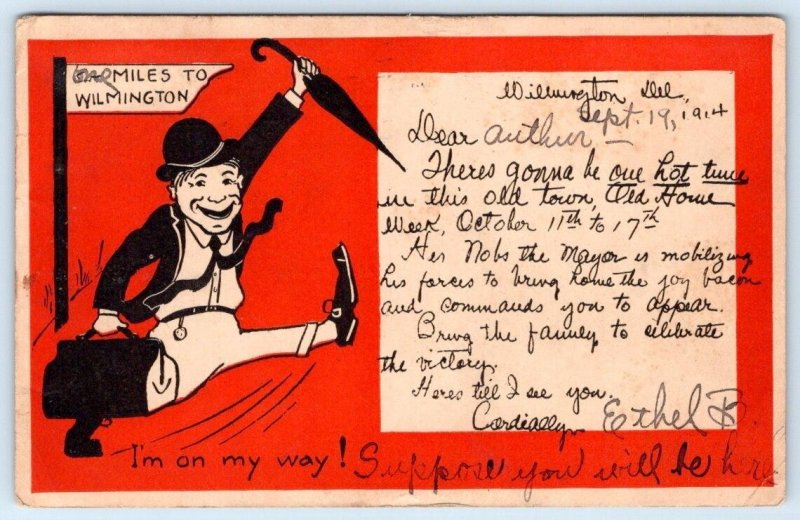 MILES TO
WILMINGTON
Wilmington Del,
Sept. 19, 1914
Dear Arthur —
Theres gonna be one hot time
in this old town, Old Home
Week, October 11th to 17th
His Nobs the Mayor is mobilizing
his forces to bring home the joy bacon
and commands you to appear.
Bring the family to celibrate
the victory.
Heres till I see you.
Cordially, Ethel B.
I'm on my way! Suppose you will be here